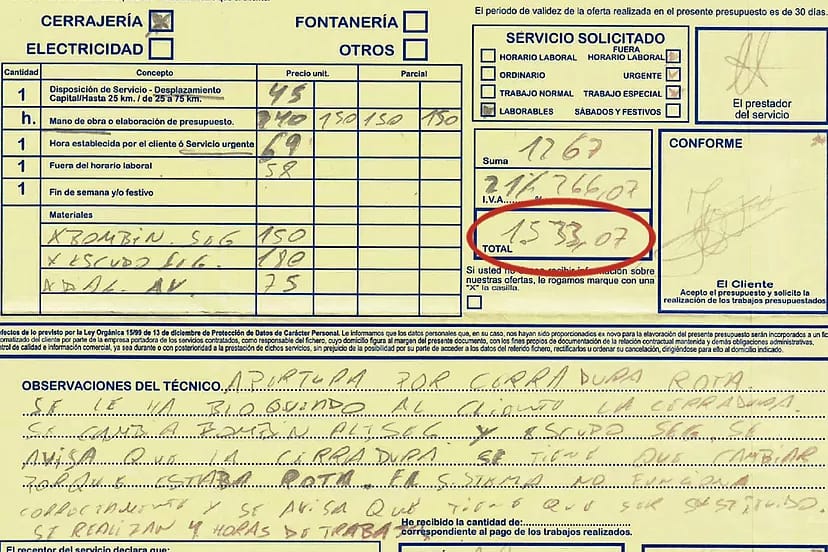 CERRAJERÍA
FONTANERÍA
ELECTRICIDAD
OTROS
El periodo de validez de la oferta realizada en el presente presupuesto es de 30 días.
SERVICIO SOLICITADO
HORARIO LABORAL
FUERA HORARIO LABORAL
ORDINARIO
URGENTE
TRABAJO NORMAL
TRABAJO ESPECIAL
LABORABLES
SÁBADOS Y FESTIVOS
El prestador
del servicio
Cantidad Concepto Precio unit. Parcial
1 Disposición de Servicio - Desplazamiento
Capital/Hasta 25 km. / de 25 a 75 km. 45
h. Mano de obra o elaboración de presupuesto. 150 150 150
1 Hora establecida por el cliente ó Servicio urgente 69
1 Fuera del horario laboral 58
1 Fin de semana y/o festivo
Materiales
X BOMBIN. SEG 150
X ESCUDO SEG. 180
75
Suma 1267
21% 266,07
I.V.A. %
TOTAL 1533,07
CONFORME
El Cliente
Acepto el presupuesto y solicito la
realización de los trabajos presupuestados
Si usted no desea recibir información sobre
nuestras ofertas, le rogamos marque con una
"X" la casilla.
efectos de lo previsto por la Ley Orgánica 15/99 de 13 de diciembre de Protección de Datos de Carácter Personal. Le informamos que los datos personales que, en su caso, nos hayan sido proporcionados ex novo para la elaboración del presente presupuesto serán incorporados a un
omatizado del cliente por parte de la empresa portadora de los servicios contratados, como responsable del fichero, cuyo domicilio figura al margen del presente documento, con los fines propios de documentación de la relación contractual mantenida y demás obligaciones administrativas,
trol de calidad e información comercial, ya sea durante o con posterioridad a la prestación de dichos servicios, sin perjuicio de la posibilidad por su parte de acceder a los datos del referido fichero, rectificarlos u ordenar su cancelación, dirigiéndose para ello al domicilio indicado.
OBSERVACIONES DEL TÉCNICO. APERTURA POR CERRADURA ROTA.
SE LE HA BLOQUEADO AL CLIENTE LA CERRADURA.
SE CAMBIA BOMBIN ALTSEG Y ESCUDO SEG. SE
AVISA QUE LA CERRADURA SE TIENE QUE CAMBIAR
PORQUE ESTABA ROTA. EL SISTEMA NO FUNCIONA
CORRECTAMENTE Y SE AVISA QUE TIENE QUE SER SUSTITUIDO.
SE REALIZAN 4 HORAS DE TRABAJO
He recibido la cantidad de:
correspondiente al pago de los trabajos realizados.
El receptor del servicio declara que: